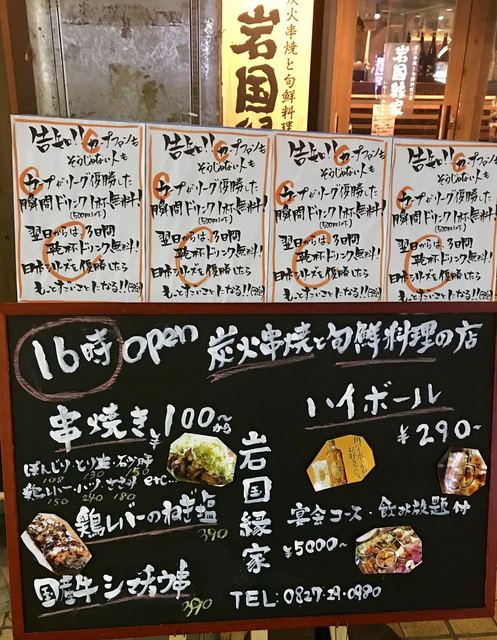 炭火串焼と旬鮮料理
岩国縁
岩国縁家
告知!! カープファンも
そうじゃない人も
カープがリーグ優勝した
瞬間ドリンク1杯無料!
(500円以下)
翌日からは、3日間
乾杯ドリンク無料!
日本シリーズを優勝したら
もっとすごいことになる!!
告知!! カープファンも
そうじゃない人も
カープがリーグ優勝した
瞬間ドリンク1杯無料!
(500円以下)
翌日からは、3日間
乾杯ドリンク無料!
日本シリーズを優勝したら
もっとすごいことになる!!
告知!! カープファンも
そうじゃない人も
カープがリーグ優勝した
瞬間ドリンク1杯無料!
(500円以下)
翌日からは、3日間
乾杯ドリンク無料!
日本シリーズを優勝したら
もっとすごいことになる!!
告知!! カープファンも
そうじゃない人も
カープがリーグ優勝した
瞬間ドリンク1杯無料!
(500円以下)
翌日からは、3日間
乾杯ドリンク無料!
日本シリーズを優勝したら
もっとすごいことになる!!
16時 open 炭火串焼と旬鮮料理の店
串焼き ¥100~から
ぼんじり・とり皮・砂ずり
鶏レバー・ハツ・ささみ etc...
150 240 180
鶏レバーのねぎ塩
390
国産牛シマチョウ串
390
岩国縁家
ハイボール
¥290~
宴会コース・飲み放題付
¥5000~
TEL:0827-29-0980